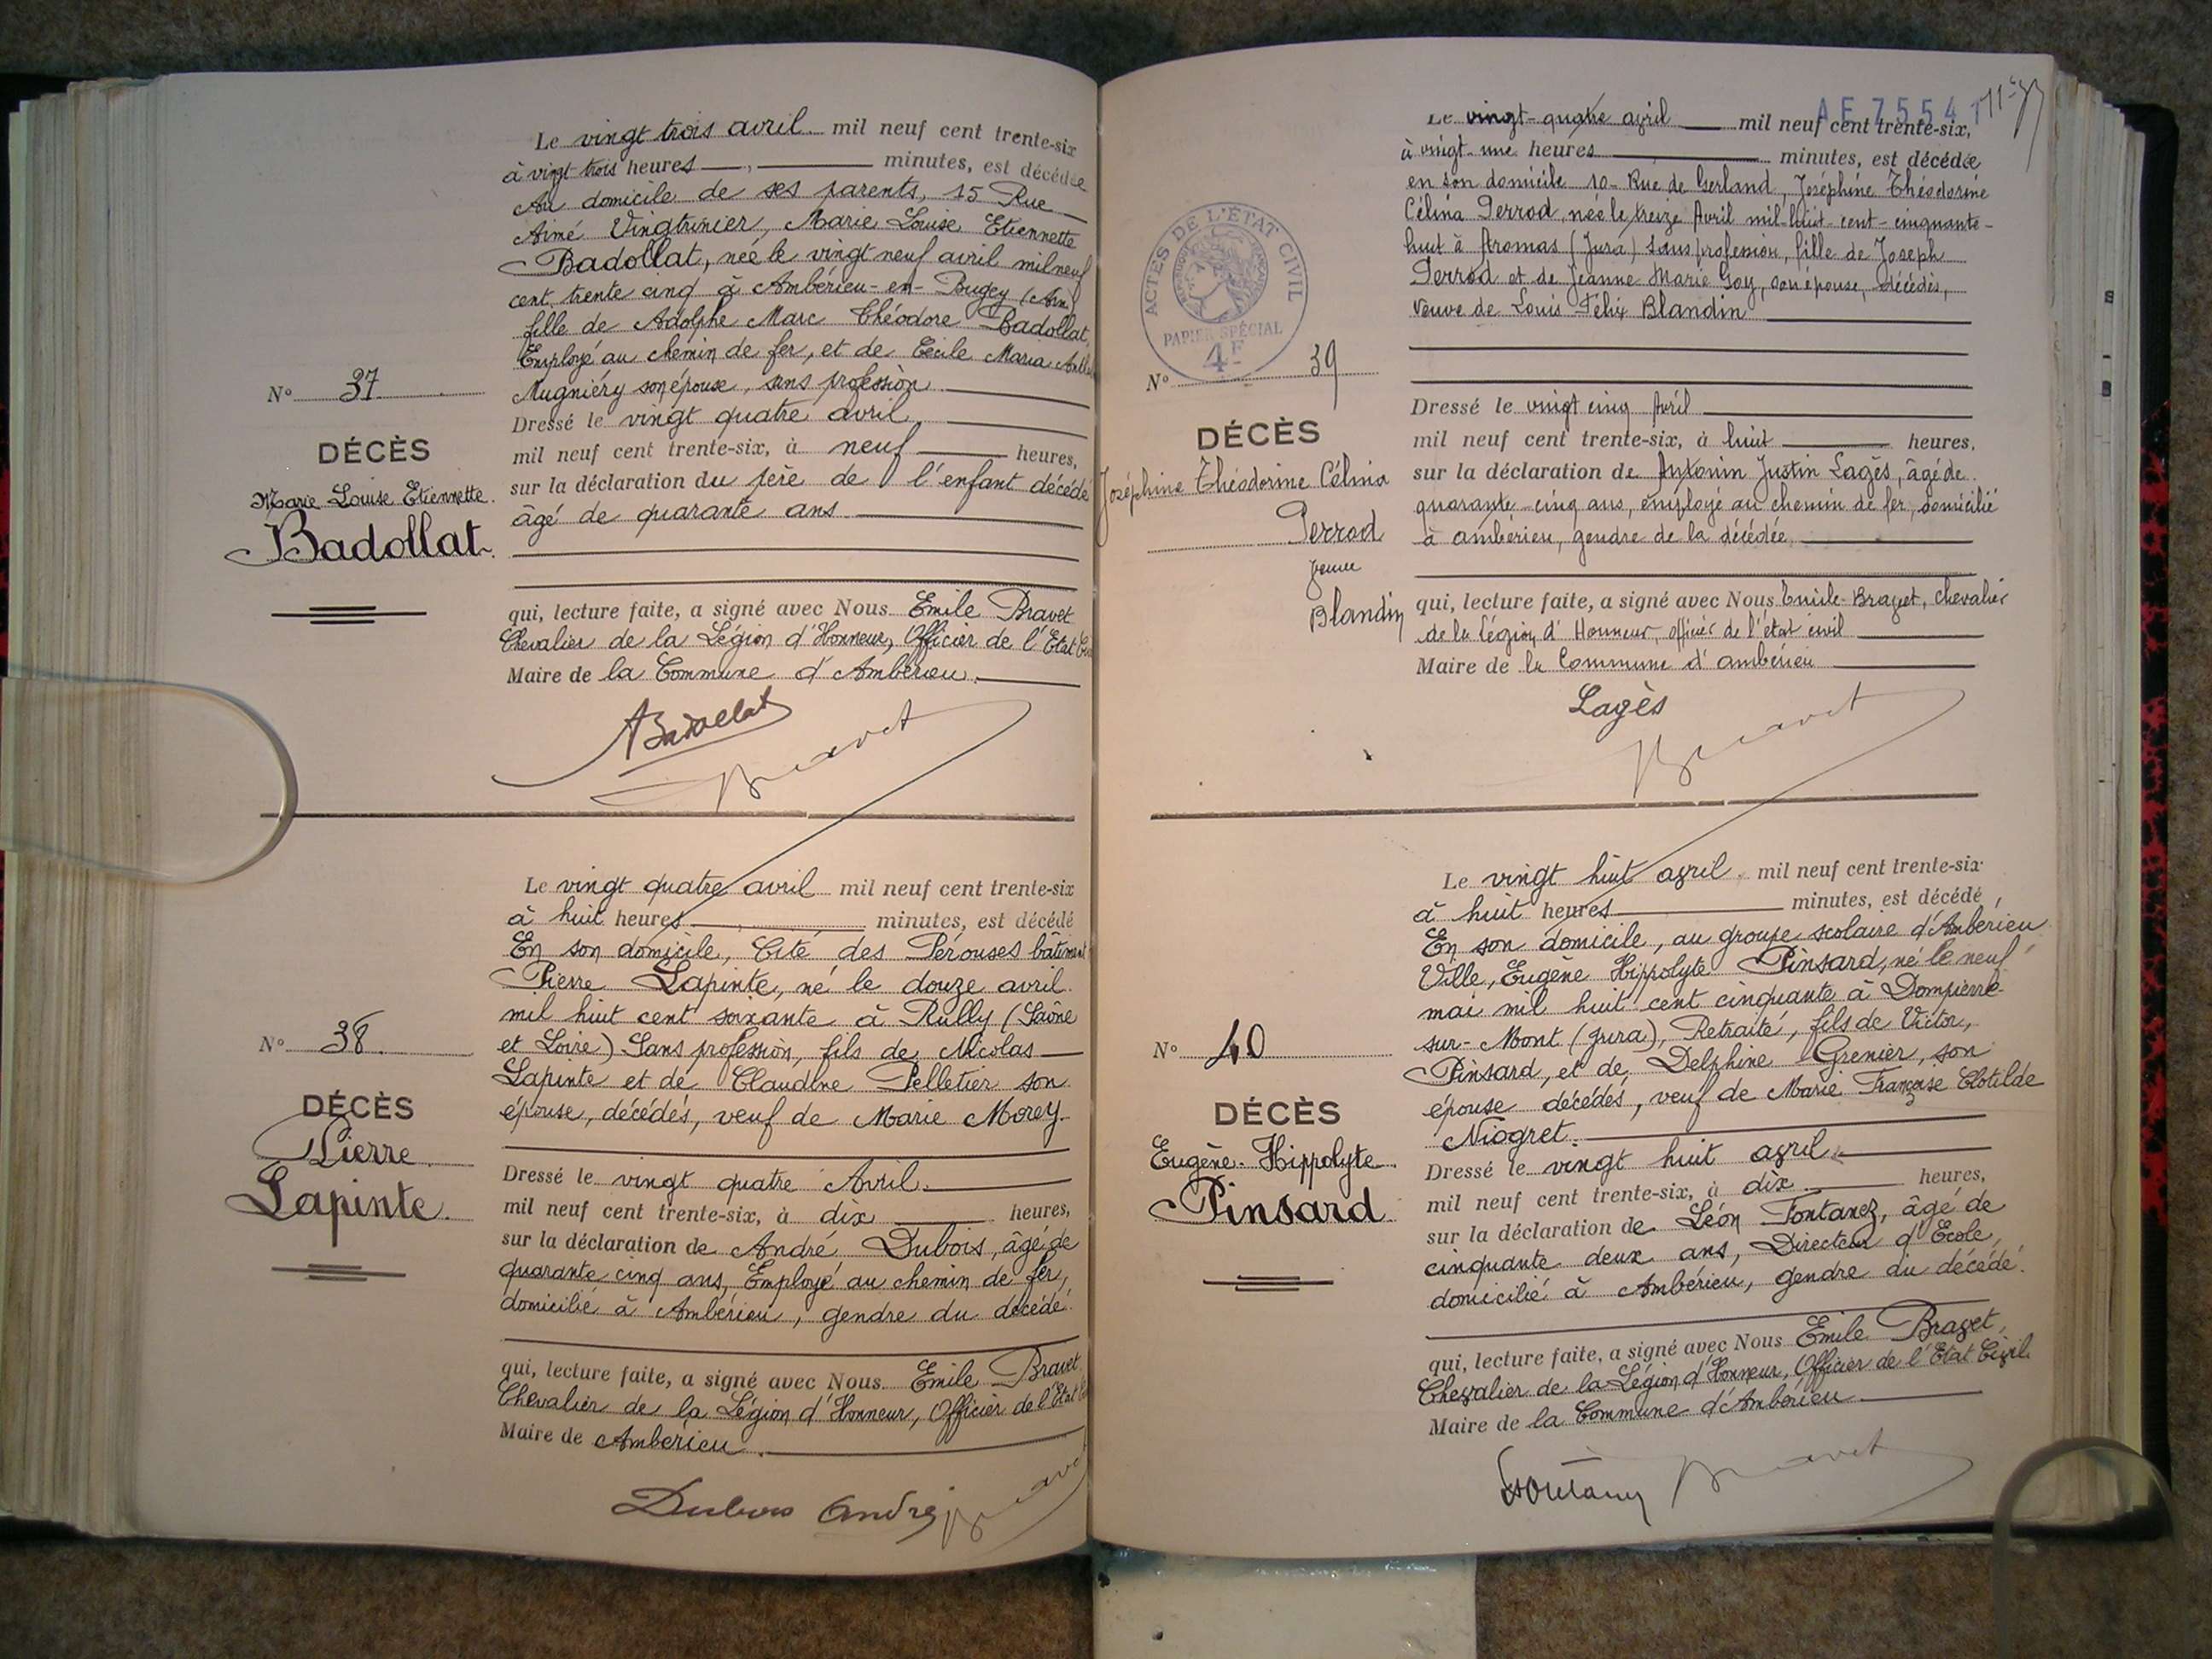 Le vingt trois avril mil neuf cent trente-six
à vingt trois heures minutes, est décédée
Au domicile de ses parents, 15 Rue
Aimé Vingtrinier, Marie Louise Etiennette
Badollat, née le vingt neuf avril mil neuf
cent trente cinq à Ambérieu-en-Bugey (Ain)
fille de Adolphe Marc Théodore Badollat,
Employé au chemin de fer, et de Cécile Maria
Mugniéry son épouse, sans profession
Dressé le vingt quatre avril
mil neuf cent trente-six, à neuf heures,
sur la déclaration du père de l'enfant décédé
âgé de quarante ans
qui, lecture faite, a signé avec Nous Emile Bravet
Chevalier de la Légion d'Honneur, Officier de l'Etat
Maire de la Commune d'Ambérieu
ABadollat
Bravet
N° 37
DÉCÈS
Marie Louise Etiennette
Badollat
Le vingt quatre avril mil neuf cent trente-six
à huit heures minutes, est décédé
En son domicile, Cité des Pérouses bâtiment
Pierre Lapinte, né le douze avril
mil huit cent soixante à Rully (Saône
et Loire) Sans profession, fils de Nicolas
Lapinte et de Claudine Pelletier son
épouse, décédés, veuf de Marie Morey
Dressé le vingt quatre Avril
mil neuf cent trente-six, à dix heures,
sur la déclaration de André Dubois, âgé de
quarante cinq ans, Employé au chemin de fer,
domicilié à Ambérieu, gendre du décédé.
qui, lecture faite, a signé avec Nous Emile Bravet
Chevalier de la Légion d'Honneur, Officier de l'Etat
Maire de Ambérieu
Dubois André Bravet
N° 38
DÉCÈS
Pierre
Lapinte
AE 7554
Le vingt-quatre avril mil neuf cent trente-six,
à vingt-une heures minutes, est décédée
en son domicile 10 Rue de Gerland, Joséphine Théodorine
Célina Perrod, née le treize Avril mil-huit-cent-cinquante-
huit à Aromas (Jura) sans profession, fille de Joseph
Perrod et de Jeanne Marie Goy, son épouse, décédés,
veuve de Louis Félix Blandin
Dressé le vingt cinq Avril
mil neuf cent trente-six, à huit heures,
sur la déclaration de Antonin Justin Lagès, âgé de
quarante-cinq ans, employé au chemin de fer, domicilié
à ambérieu, gendre de la décédée
qui, lecture faite, a signé avec Nous Emile Bravet, chevalier
de la Légion d'Honneur, officier de l'état civil
Maire de la Commune d'ambérieu
Lagès
Bravet
ACTES DE L'ÉTAT CIVIL
PAPIER SPÉCIAL
4F
N° 39
DÉCÈS
Joséphine Théodorine Célina
Perrod
veuve
Blandin
Le vingt huit avril mil neuf cent trente-six
à huit heures minutes, est décédé
En son domicile, au groupe scolaire d'Ambérieu
Ville, Eugène Hippolyte Pinsard, né le neuf
mai mil huit cent cinquante à Dompierre-
sur-Mont (Jura), Retraité, fils de Victor,
Pinsard, et de Delphine Grenier, son
épouse décédés, veuf de Marie Françoise Clotilde
Niogret.
Dressé le vingt huit avril
mil neuf cent trente-six, à dix heures,
sur la déclaration de Léon Fontanez, âgé de
cinquante deux ans, Directeur d'Ecole,
domicilié à Ambérieu, gendre du décédé.
qui, lecture faite, a signé avec Nous Emile Bravet,
Chevalier de la Légion d'Honneur, Officier de l'Etat Civil
Maire de la Commune d'Ambérieu
Bravet
N° 40
DÉCÈS
Eugène-Hippolyte
Pinsard